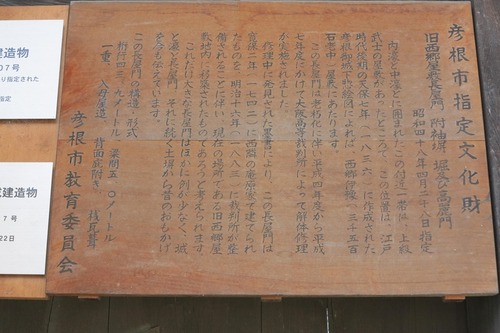 彦根市指定文化財
旧西郷屋敷長屋門 附袖塀、塀及び高麗門
昭和四十八年四月二十八日指定
内濠と中濠とに囲まれたこの付近一帯は、上級
武士の屋敷があったところで、この位置は、江戸
時代後期の天保七年(一八三六)に作成された
彦根御城下惣絵図によれば、西郷伊豫、三千五百
石老中屋敷にあたります。
この長屋門は老朽化に伴い平成四年度から平成
七年度にかけて大阪高等裁判所によって解体修理
が実施されました。
修理中に発見された墨書により、この長屋門は
寛保二年(一七四二)に西隣の庵原家で建てられ
たものを、明治十六年(一八八三)に裁判所が整
備されることに伴い、現在の場所である旧西郷屋
敷地内に移築されたものであろうと考えられます。
これだけ大きな長屋門はほかに例が少なく、城
と濠と長屋門、それに続く土塀から昔のおもかげ
を今も伝えています。
この長屋門の構造・形式
桁行四三・九メートル 梁間五・〇メートル
一重、入母屋造 背面庇附き、桟瓦葺
彦根市教育委員会
建造物
07号
り指定された
指定
建造物
7号
22日